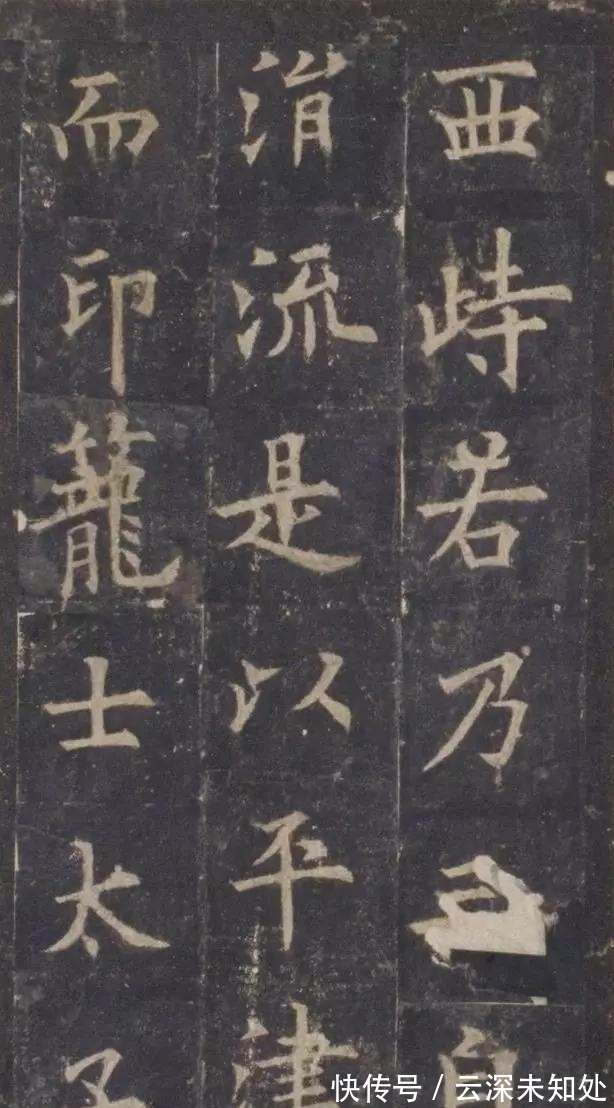 西峙若乃
涓流是以平津
而印籠士太子
快传号 / 云深未知处